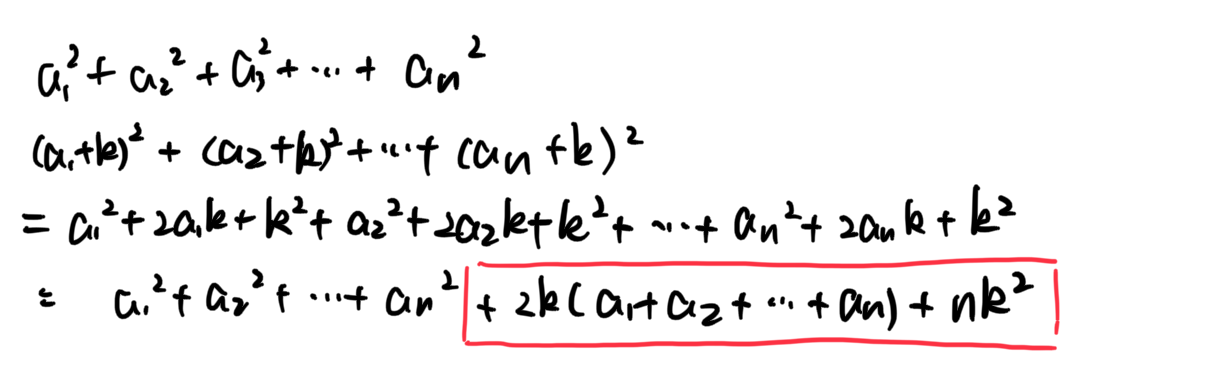 a₁² + a₂² + a₃² + ... + aₙ²
(a₁+k)² + (a₂+k)² + ... + (aₙ+k)²
= a₁² + 2a₁k + k² + a₂² + 2a₂k + k² + ... + aₙ² + 2aₙk + k²
= a₁² + a₂² + ... + aₙ² + 2k(a₁+a₂+...+aₙ) + nk²